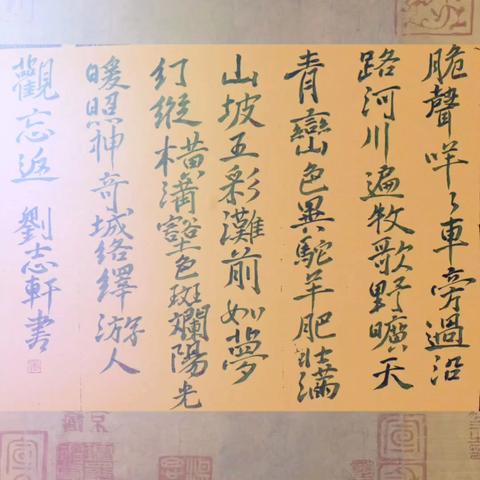 脆聲咩々車旁過沿
路河川遍牧歌野曠天
青巒色異駝羊肥壯滿
山坡五彩灘前如夢
幻縱橫溝豁土色斑斕陽光
暖照神奇城絡繹游人
觀忘返 劉志軒書